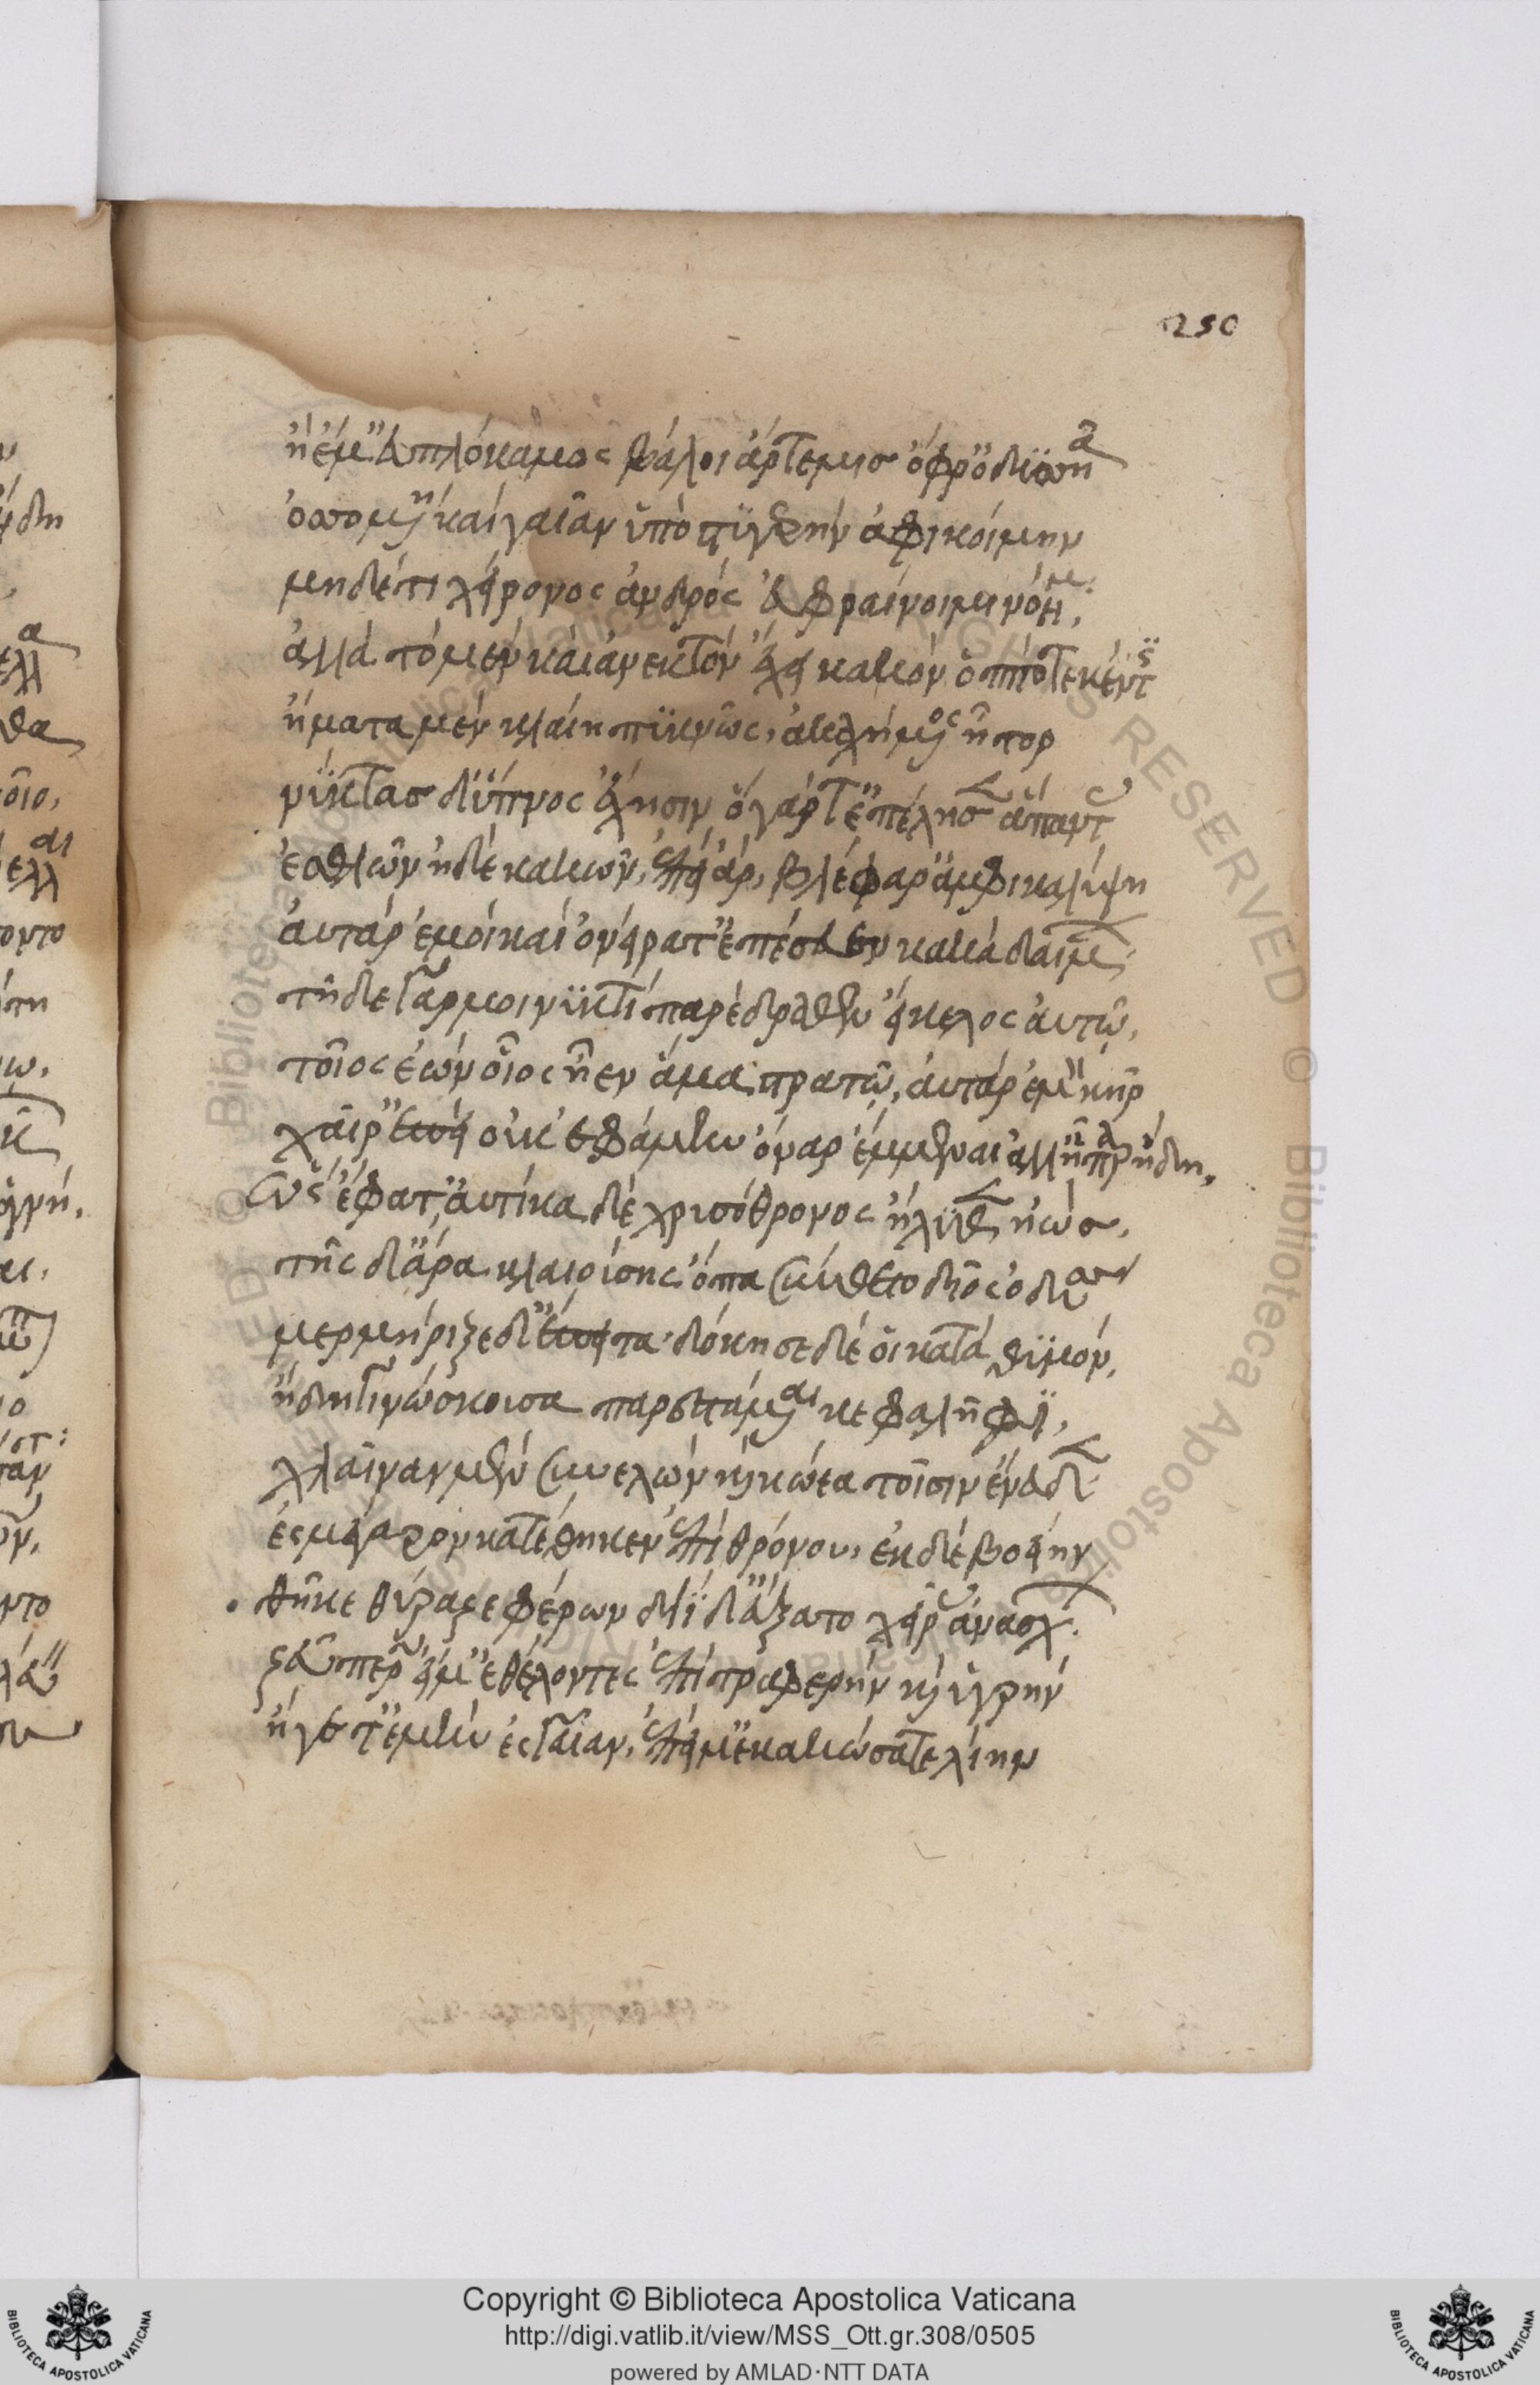 250
ἠέμ' ἐϋπλόκαμος βάλοι ἄρτεμισ ὄφρ' ὀδυσῆα
ὀσσομένη καὶ γαῖαν ὑπὸ στυγερὴν ἀφικοίμην
μηδέ τι χείρονος ἀνδρὸς εὐφραίνοιμι νόημα,
ἀλλὰ τὸ μὲν καὶ ἀνεκτὸν ἔχει κακὸν ὁππότε κέν τις
ἤματα μὲν κλαίη πυκινῶς, ἀκαχήμενος ἦτορ
νύκτασ δ' ὕπνος ἔχησιν ὁ γάρ τ' ἐπέλησεν ἁπάντων
ἐσθλῶν ἠδὲ κακῶν, ἐπεὶ ἄρ, βλέφαρ' ἀμφικαλύψη
αὐτὰρ ἐμοὶ καὶ ὀνείρατ' ἐπέσσευεν κακὰ δαίμων.
τῆδε γάρ μοι νυκτὶ παρέδραθεν εἴκελος αὐτῶ,
τοῖος ἐὼν οἷος ἦεν ἅμα στρατῶ, αὐτὰρ ἐμὸν κῆρ
χαῖρ' ἐπεὶ οὐκ ἐφάμην ὄναρ ἔμμεναι ἀλλ' ὕπαρ ἤδη,
ὣς ἔφατ', αὐτίκα δὲ χρυσόθρονος ἤλυθεν ἠώσ,
τῆς δ' ἄρα κλαιούσης ὄπα σύνθετο δῖος ὀδυσσεύς
μερμήριζε δ' ἔπειτα· δόκησε δέ οἱ κατὰ θυμόν,
ἤδη γινώσκουσα παρεστάμεναι κεφαλῆφι,
χλαῖναν μὲν συνελὼν καὶ κώεα τοῖσιν ἐνεῦδεν
ἐς μέγαρον κατέθηκεν ἐπὶ θρόνου, ἐκ δὲ βοείην
θῆκε θύραζε φέρων διῒ δ' εὔξατο χεῖρας ἀνασχών.
ζεῦ πάτερ εἴ μ' ἐθέλοντες ἐπὶ τραφερὴν καὶ ὑγρὴν
ἤγετ' ἐμὴν ἐς γαῖαν, ἐπεί μ' ἐκακώσατε λίην
Copyright © Biblioteca Apostolica Vaticana
http://digi.vatlib.it/view/MSS_Ott.gr.308/0505
powered by AMLAD·NTT DATA